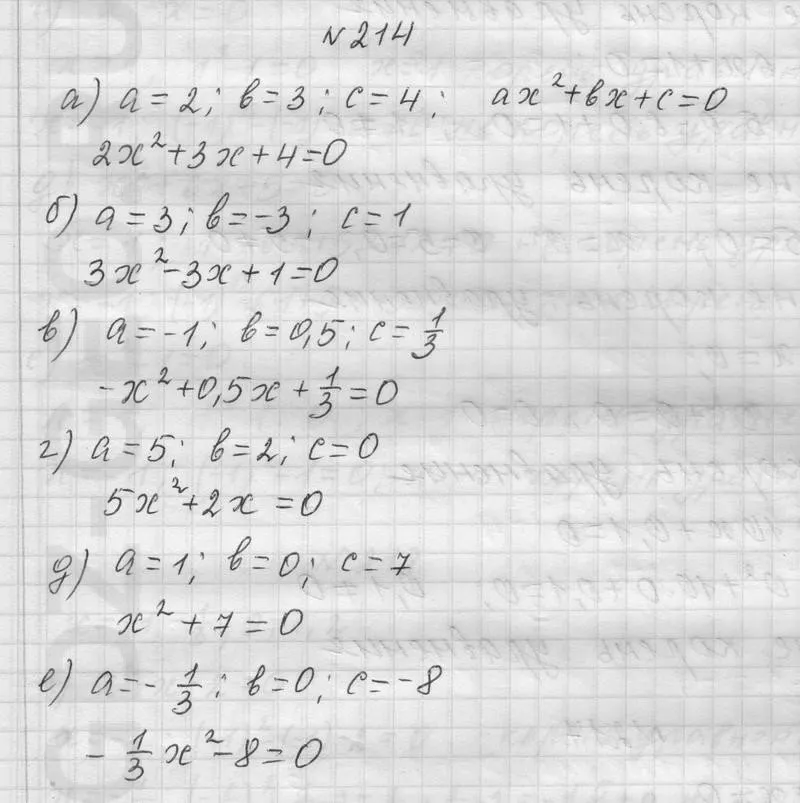 №214
а) a = 2; b = 3; c = 4; ax² + bx + c = 0
2x² + 3x + 4 = 0
б) a = 3; b = -3; c = 1
3x² - 3x + 1 = 0
в) a = -1; b = 0,5; c = 1/3
-x² + 0,5x + 1/3 = 0
г) a = 5; b = 2; c = 0
5x² + 2x = 0
д) a = 1; b = 0; c = 7
x² + 7 = 0
е) a = - 1/3; b = 0; c = -8
- 1/3 x² - 8 = 0